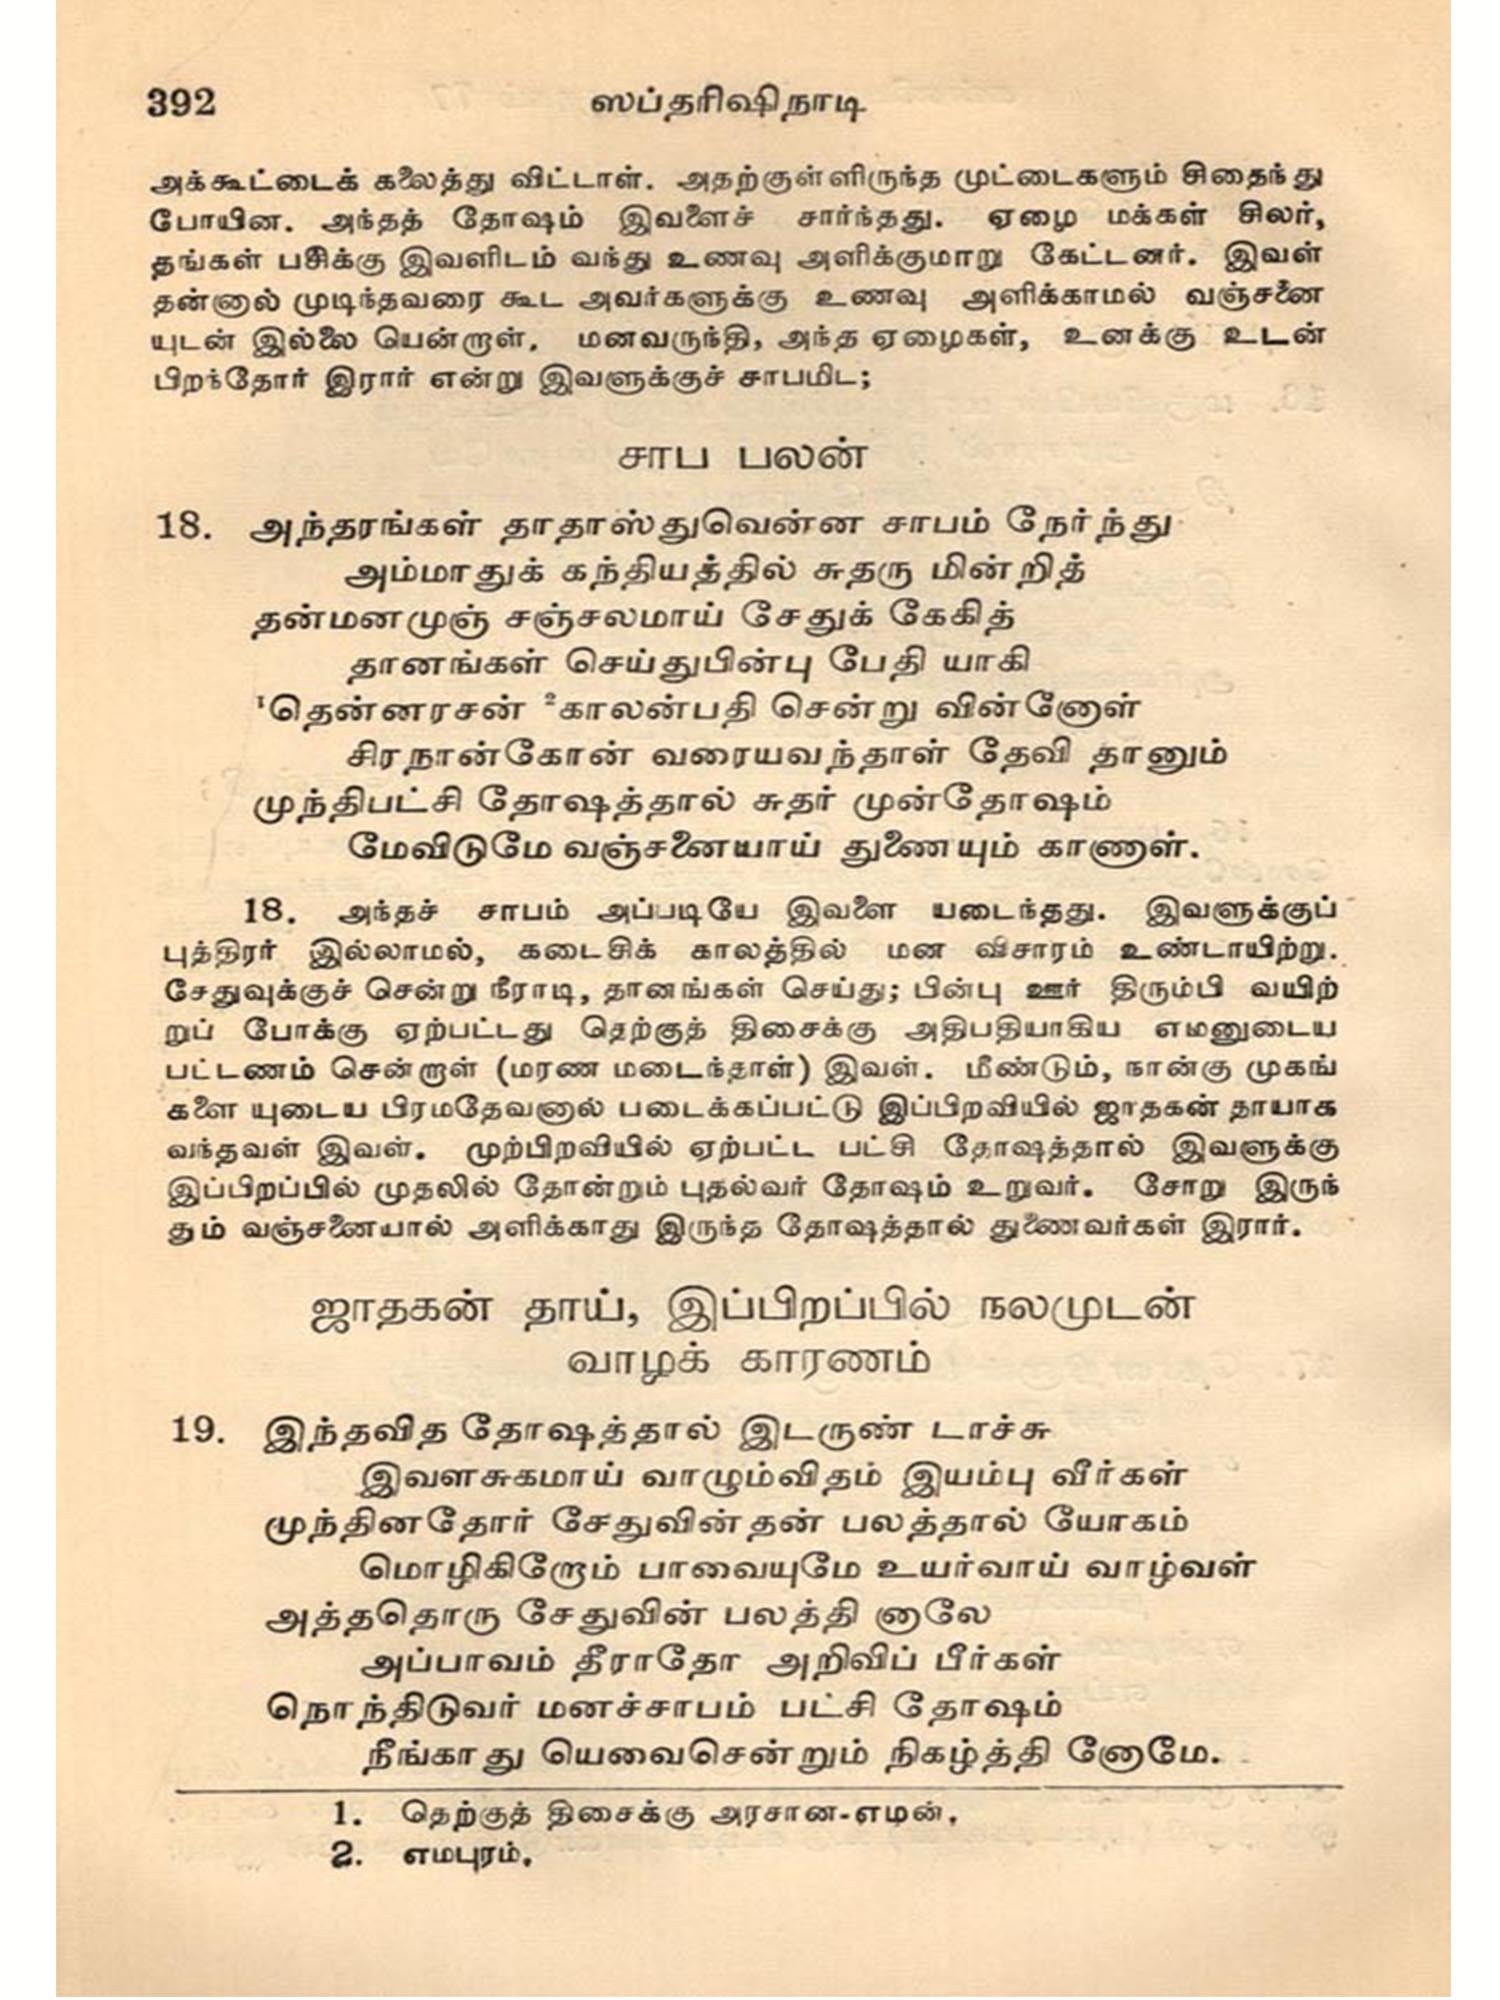 392 ஸப்தரிஷிநாடி
அக்கூட்டைக் கலைத்து விட்டாள். அதற்குள்ளிருந்த முட்டைகளும் சிதைந்து
போயின. அந்தத் தோஷம் இவளைச் சார்ந்தது. ஏழை மக்கள் சிலர்,
தங்கள் பசிக்கு இவளிடம் வந்து உணவு அளிக்குமாறு கேட்டனர். இவள்
தன்னால் முடிந்தவரை கூட அவர்களுக்கு உணவு அளிக்காமல் வஞ்சனை
யுடன் இல்லை யென்றாள். மனவருந்தி, அந்த ஏழைகள், உனக்கு உடன்
பிறந்தோர் இரார் என்று இவளுக்குச் சாபமிட;
சாப பலன்
18. அந்தரங்கள் தாதாஸ்துவென்ன சாபம் நேர்ந்து
அம்மாதுக் கந்தியத்தில் சுதரு மின்றித்
தன்மனமுஞ் சஞ்சலமாய் சேதுக் கேகித்
தானங்கள் செய்துபின்பு பேதி யாகி
¹தென்னரசன் ²காலன்பதி சென்று வின்னோள்
சிரநான்கோன் வரையவந்தாள் தேவி தானும்
முந்திபட்சி தோஷத்தால் சுதர் முன்தோஷம்
மேவிடுமே வஞ்சனையாய் துணையும் காணாள்.
18. அந்தச் சாபம் அப்படியே இவளை யடைந்தது. இவளுக்குப்
புத்திரர் இல்லாமல், கடைசிக் காலத்தில் மன விசாரம் உண்டாயிற்று.
சேதுவுக்குச் சென்று நீராடி, தானங்கள் செய்து; பின்பு ஊர் திரும்பி வயிற்
றுப் போக்கு ஏற்பட்டது தெற்குத் திசைக்கு அதிபதியாகிய எமனுடைய
பட்டணம் சென்றாள் (மரண மடைந்தாள்) இவள். மீண்டும், நான்கு முகங்
களை யுடைய பிரமதேவனால் படைக்கப்பட்டு இப்பிறவியில் ஜாதகன் தாயாக
வந்தவள் இவள். முற்பிறவியில் ஏற்பட்ட பட்சி தோஷத்தால் இவளுக்கு
இப்பிறப்பில் முதலில் தோன்றும் புதல்வர் தோஷம் உறுவர். சோறு இருந்
தும் வஞ்சனையால் அளிக்காது இருந்த தோஷத்தால் துணைவர்கள் இரார்.
ஜாதகன் தாய், இப்பிறப்பில் நலமுடன்
வாழக் காரணம்
19. இந்தவித தோஷத்தால் இடருண் டாச்சு
இவளசுகமாய் வாழும்விதம் இயம்பு வீர்கள்
முந்தினதோர் சேதுவின்தன் பலத்தால் யோகம்
மொழிகிறோம் பாவையுமே உயர்வாய் வாழ்வள்
அத்ததொரு சேதுவின் பலத்தி னாலே
அப்பாவம் தீராதோ அறிவிப் பீர்கள்
நொந்திடுவர் மனச்சாபம் பட்சி தோஷம்
நீங்காது யெவைசென்றும் நிகழ்த்தி னோமே.
1. தெற்குத் திசைக்கு அரசான-எமன்.
2. எமபுரம்.